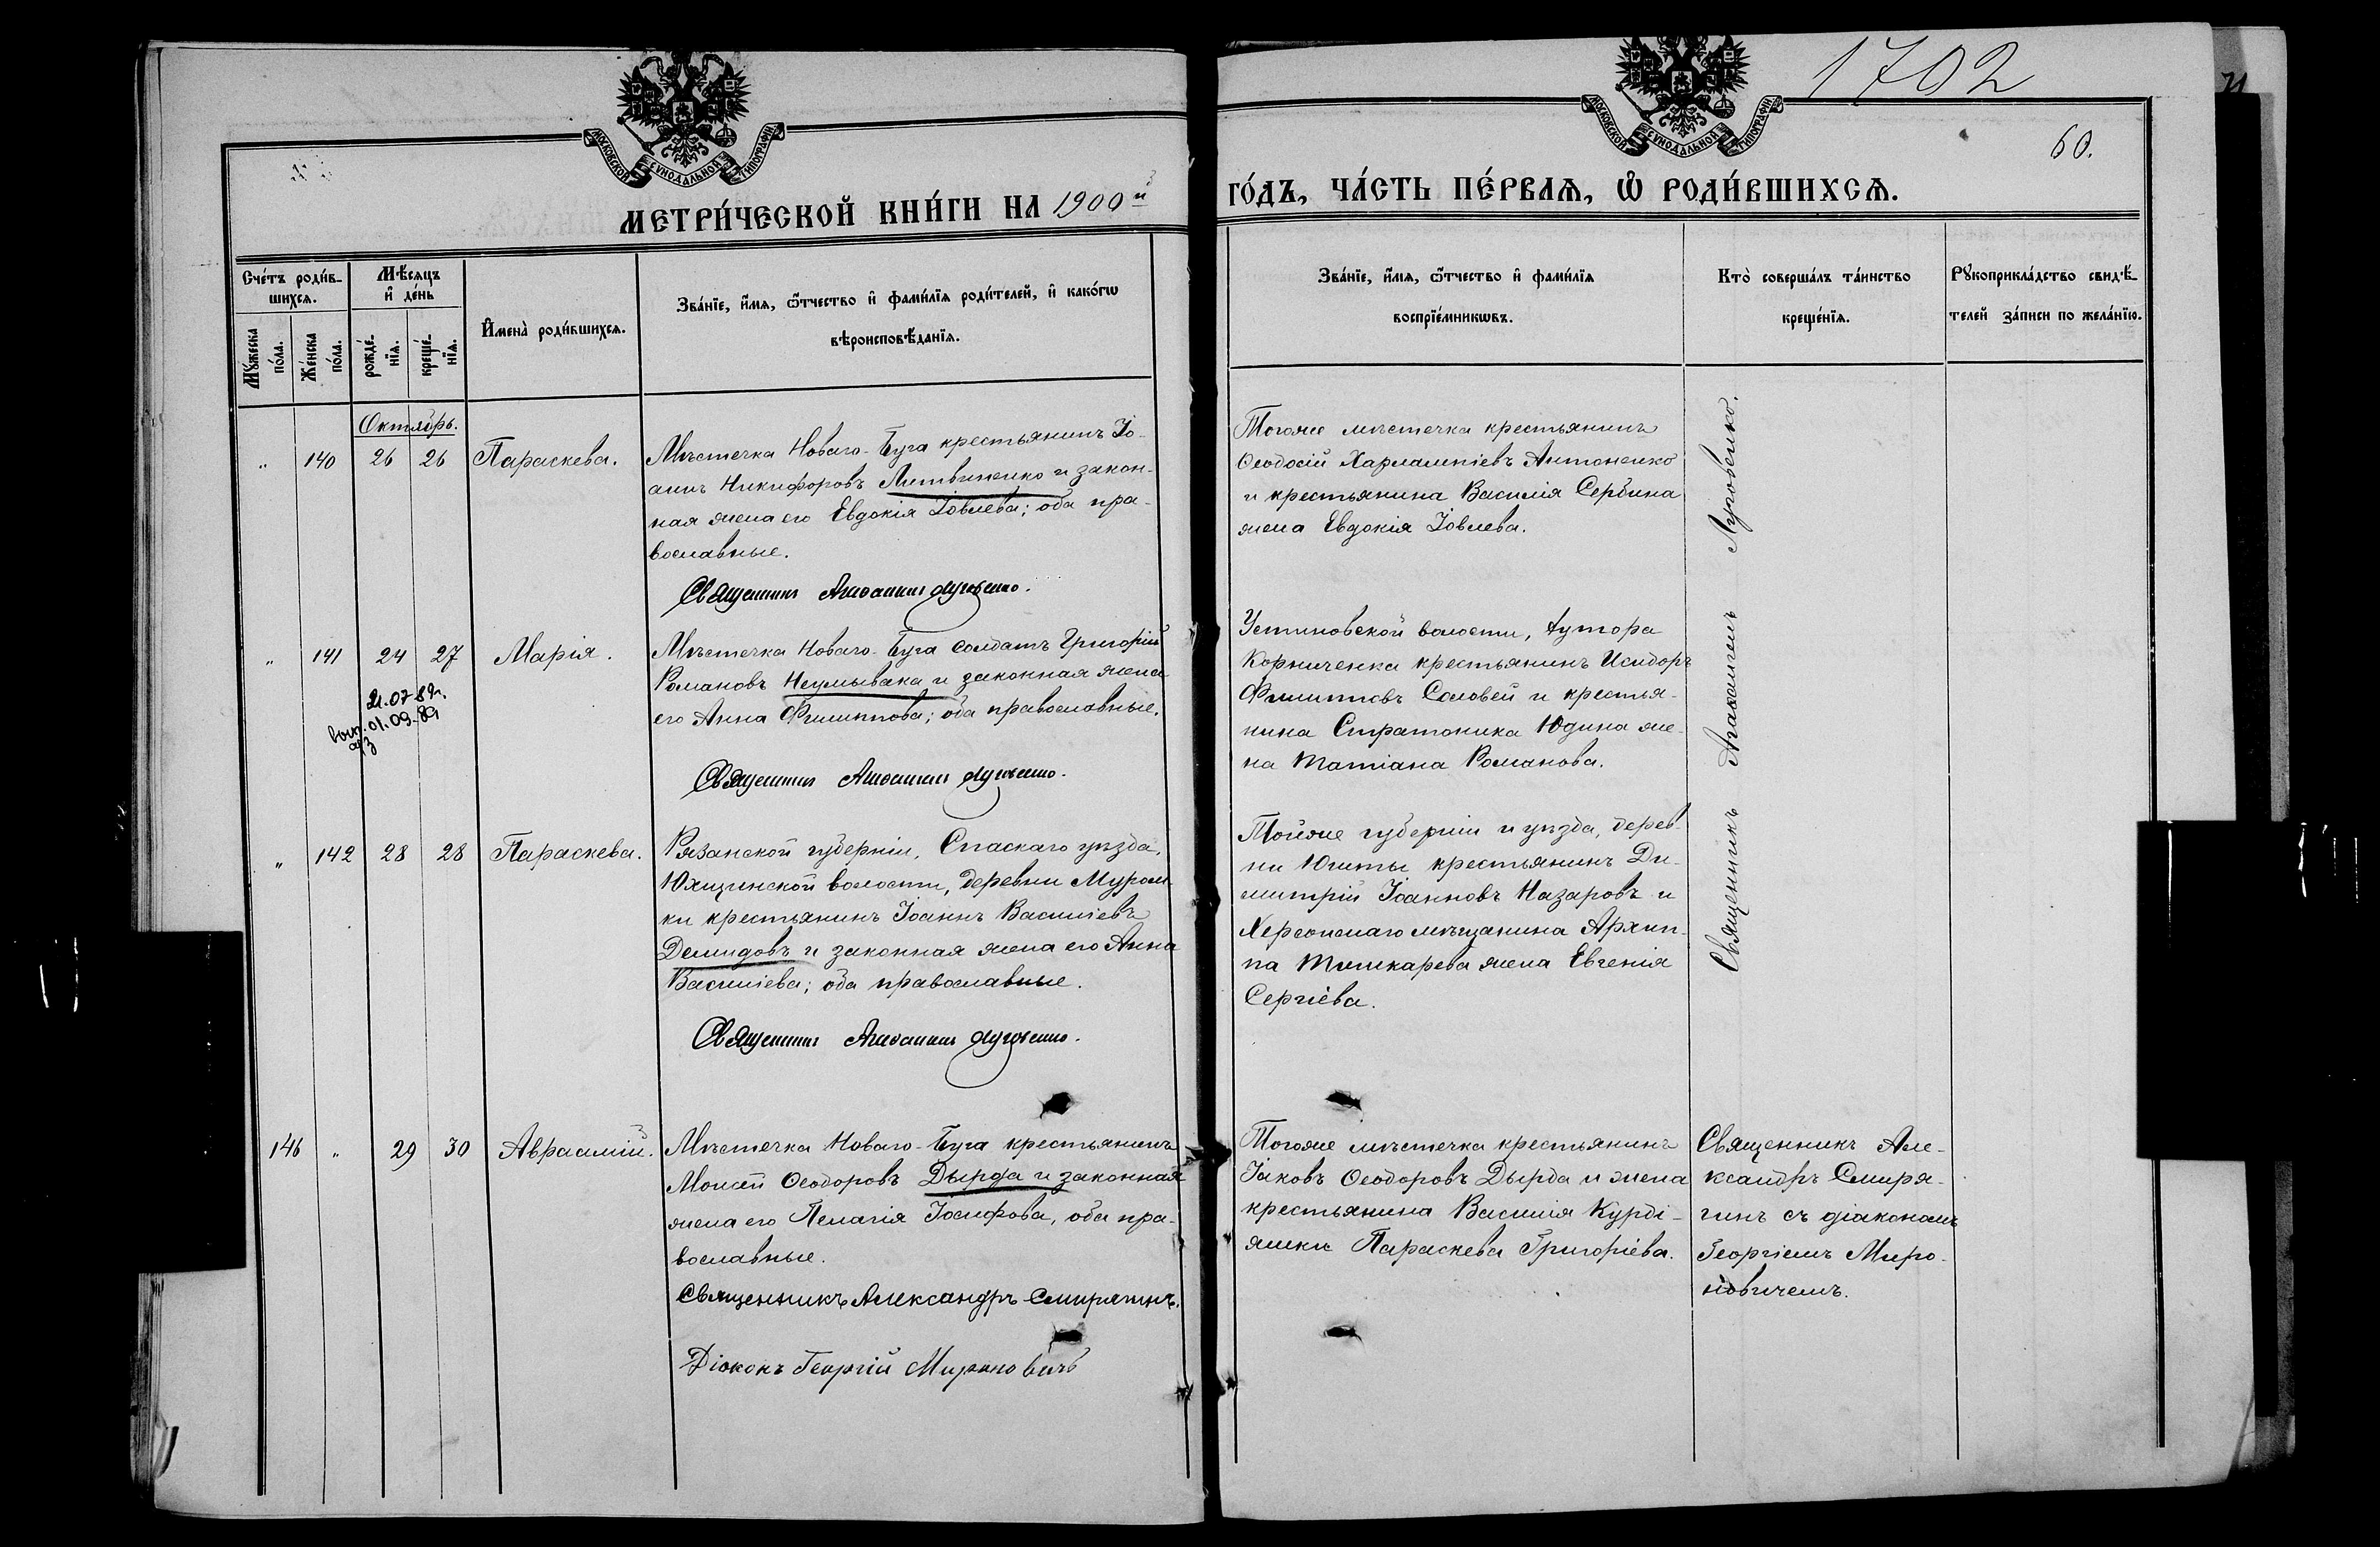 1702
60.
МОСКОВСКОЙ СѴНОДАЛЬНОЙ ТИПОГРАФІИ
МОСКОВСКОЙ СѴНОДАЛЬНОЙ ТИПОГРАФІИ
МЕТРИ́ЧЕСКОЙ КНИ́ГИ НА 1900й ГО́ДЪ, ЧА́СТЬ ПЕ́РВАѦ, Ѽ РОДИ́ВШИХСѦ.
Сче́тъ роди́в-
шихсѧ.
Мꙋ́жеска
по́ла.
Же́нска
по́ла.
Мѣ́сяцъ
и҆ де́нь
рожде́-
нїѧ.
креще́-
нїѧ.
И҆мена̀ роди́вшихсѧ.
Зва́нїе, и҆́мѧ, ѻ҆́тчество и҆ фами́лїѧ роди́телей, и҆ како́гѡ
вѣроисповѣ́данїѧ.
Зва́нїе, и҆́мѧ, ѻ҆́тчество и҆ фами́лїѧ
воспрїе́мникѡвъ.
Кто̀ соверша́лъ та́инство
креще́нїѧ.
Рꙋкоприкла́дство свидѣ́-
телей за́писи по жела́нїю.
Октябрь.
„ 140 26 26 Параскева.
Мѣстечка Новаго-Буга крестьянинъ Іо-
аннъ Никифоровъ Литвиненко и закон-
ная жена его Евдокія Іовлева; оба пра-
вославные.
Священникъ Агаѳангелъ Луговенко.
Тогоже мѣстечка крестьянинъ
Ѳеодосій Харлампіевъ Антоненко
и крестьянина Василія Сербина
жена Евдокія Іовлева.
„ 141 24 27 Марія.
21.07.89г.
01.09.89
Мѣстечка Новаго-Буга солдатъ Григорій
Романовъ Неумывака и законная жена
его Анна Филиппова; оба православные.
Священникъ Агаѳангелъ Луговенко.
Устиновской волости, хутора
Корниченка крестьянинъ Исидоръ
Филипповъ Соловей и крестья-
нина Стратоника Юдина же-
на Татіана Романова.
„ 142 28 28 Параскева.
Рязанской губерніи, Спаскаго уѣзда,
Юхщинской волости, деревни Муром-
ки крестьянинъ Іоаннъ Василіевъ
Демидовъ и законная жена его Анна
Василіева; оба православные.
Священникъ Агаѳангелъ Луговенко.
Тойже губерніи и уѣзда, дерев-
ни Юхты крестьянинъ Ди-
митрій Іоанновъ Назаровъ и
Херсонскаго мѣщанина Архип-
па Тишкарева жена Евгенія
Сергіева.
Священникъ Агаѳангелъ Луговенко.
146 „ 29 30 Авраамій.
Мѣстечка Новаго-Буга крестьянинъ
Моисей Ѳеодоровъ Дырда и законная
жена его Пелагія Іосифова, оба пра-
вославные.
Священникъ Александръ Смирягинъ.
Діаконъ Георгій Мироновичъ
Тогоже мѣстечка крестьянинъ
Іаковъ Ѳеодоровъ Дырда и жена
крестьянина Василія Курді-
яшки Параскева Григоріева.
Священникъ Але-
ксандръ Смиря-
гинъ съ діакономъ
Георгіемъ Миро-
новичемъ.